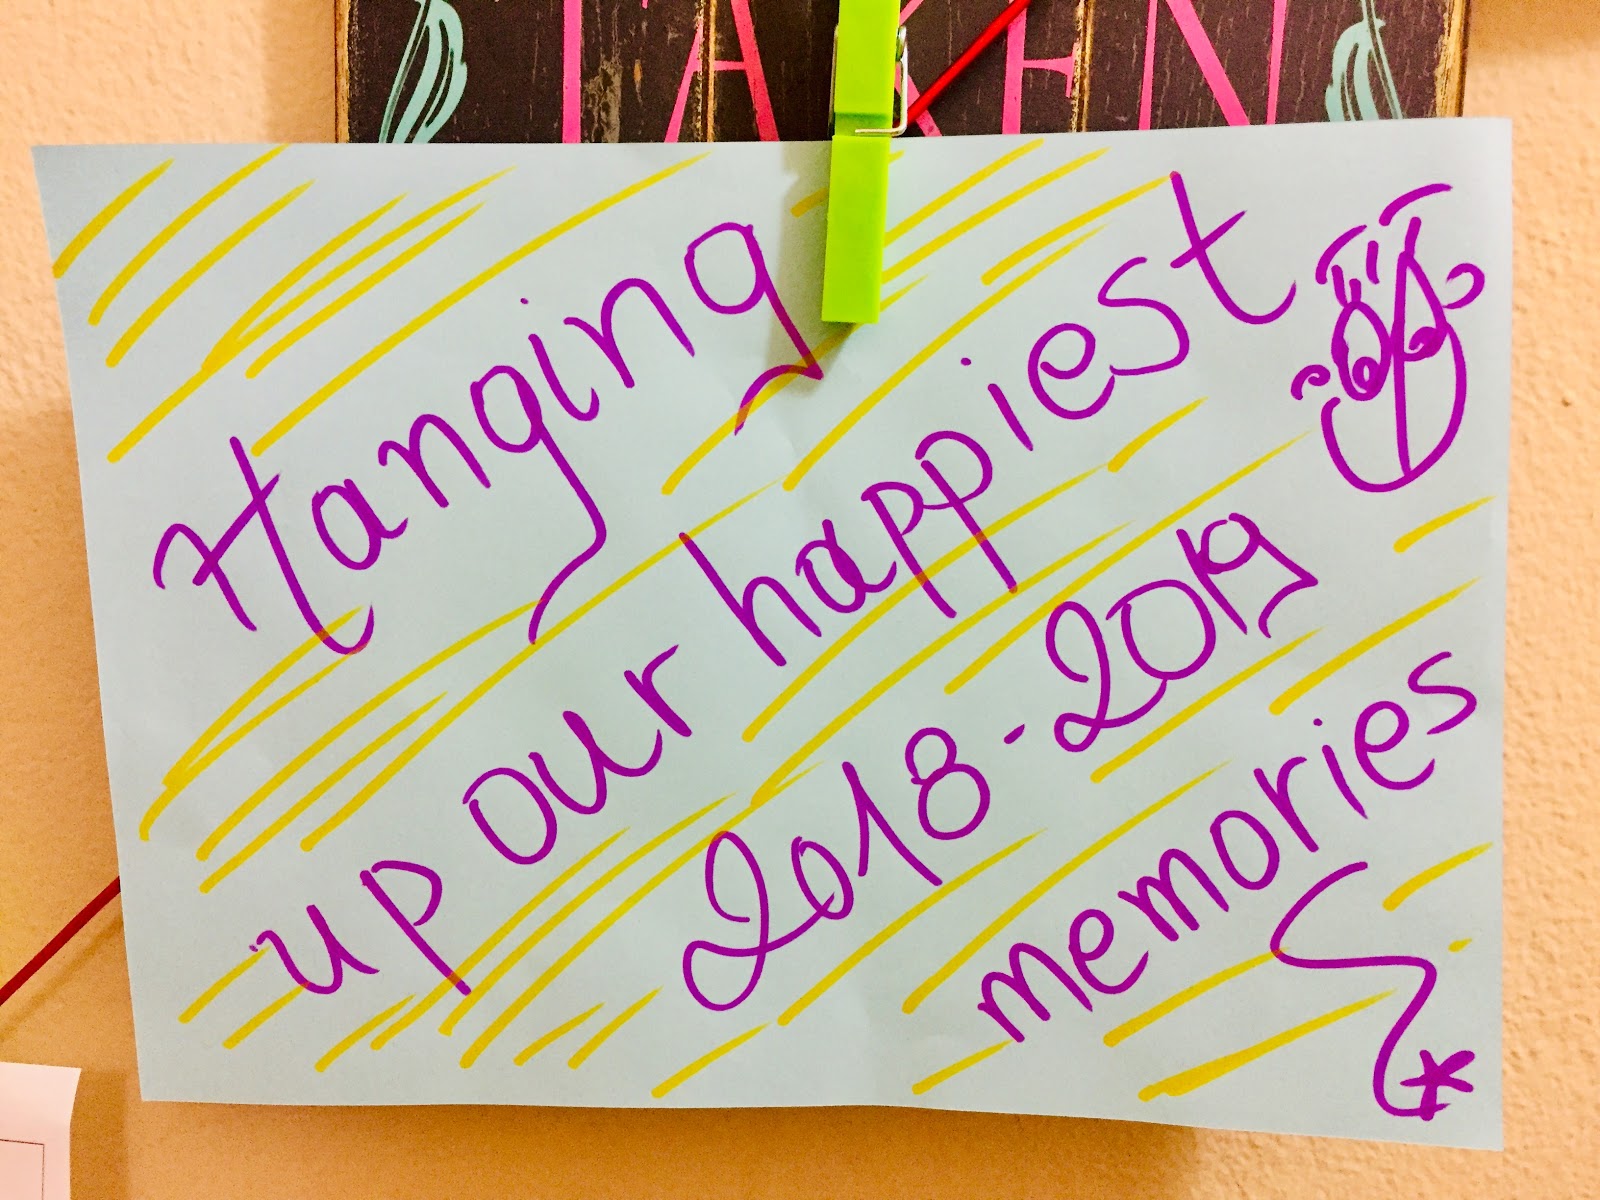 TAKEN
Hanging
up our happiest
2018-2019
memories